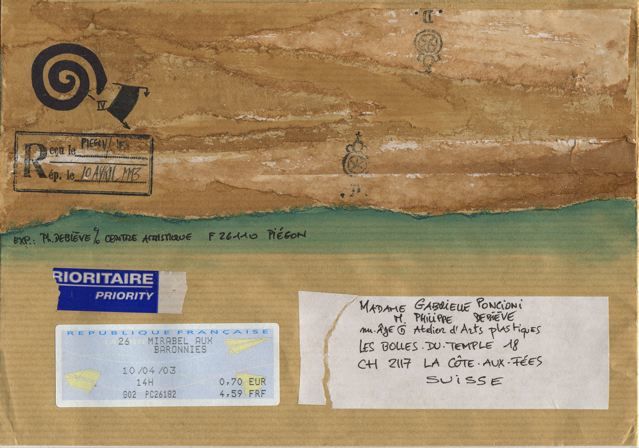 IV
Reçu le PIÉGON/
Rép. le 10 AVRIL
EXP.: PH. DEBIÈVE % CENTRE ARTISTIQUE F 26110 PIÉGON
RIORITAIRE
PRIORITY
REPUBLIQUE FRANÇAISE
26 MIRABEL AUX
BARONNIES
10/04/03
14H 0,70 EUR
002 PC26182 4,59 FRF
MADAME GABRIELLE PONCIONI
M. PHILIPPE DEBIÈVE
Atelier d'Arts plastiques
LES BOLLES-DU-TEMPLE 18
CH 2117 LA CÔTE-AUX-FÉES
SUISSE